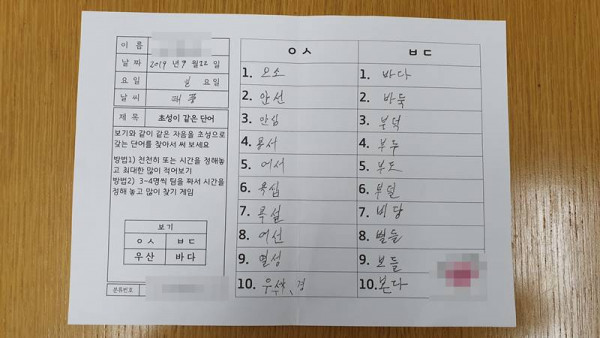 이 름
날 짜 2019 년 9 월 22 일
요 일 일 요일
날 씨
제 목 초성이 같은 단어
보기와 같이 같은 자음을 초성으로
갖는 단어를 찾아서 써 보세요
방법1) 천천히 또는 시간을 정해놓
고 최대한 많이 적어보기
방법2) 3~4명씩 팀을 짜서 시간을
정해 놓고 많이 찾기 게임
보기
ㅇㅅ ㅂㄷ
우산 바다
분류번호
ㅇㅅ ㅂㄷ
1. 1. 바다
2. 안선 2. 바둑
3. 안심 3. 부덕
4. 용서 4. 부두
5. 어서 5. 부도
6. 욕심 6.
7. 욕설 7. 비담
8. 어선 8. 벌들
9. 열성 9. 보들
10. 10. 본다